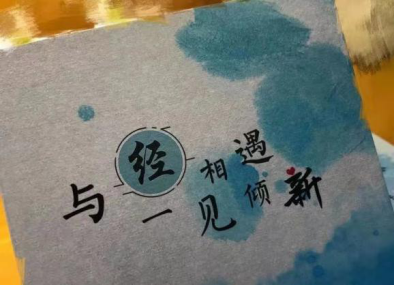 与经相遇
一见倾新